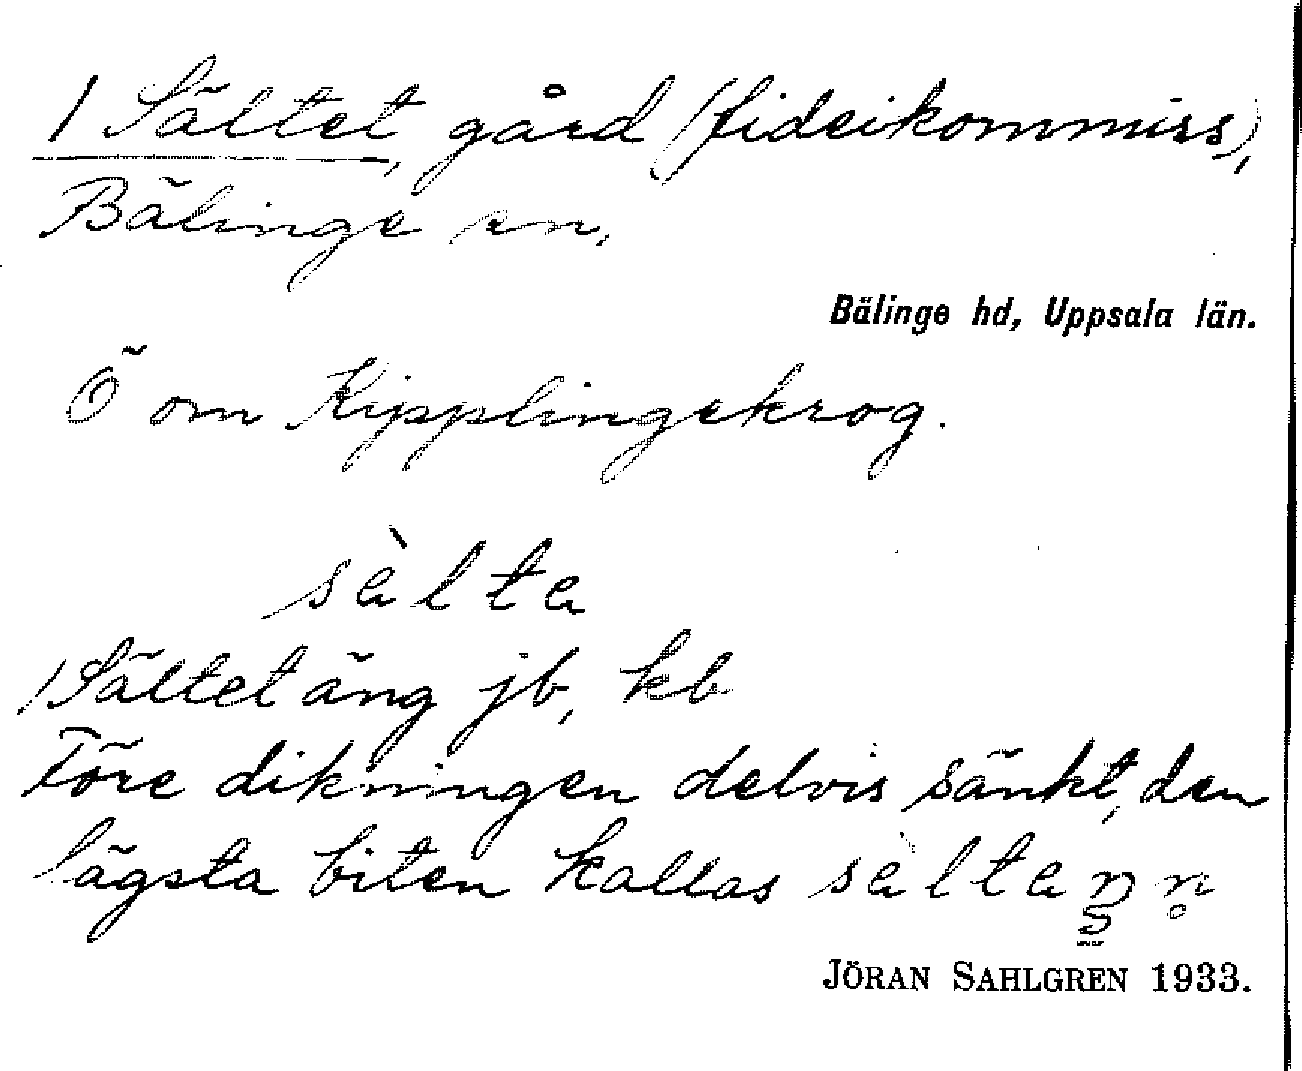 / Sältet, gård (fideikommiss),
Bälinge sn,
Bälinge hd, Uppsala län.
Ö om Kipplingekrog.
sèlta
/ Sältet äng jb, kb
Före dikningen delvis sänkt, den
lägsta biten kallas
JÖRAN SAHLGREN 1933.